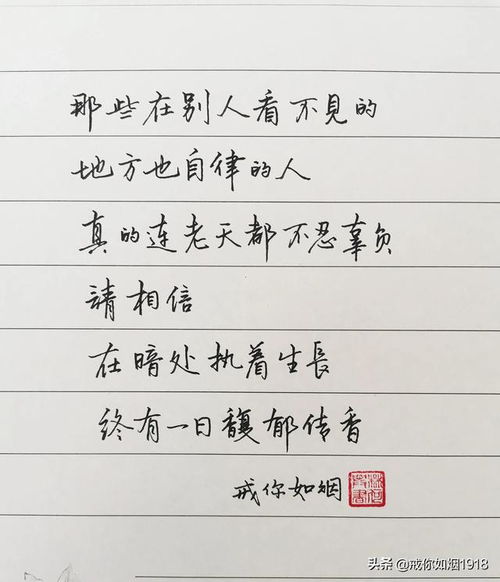 那些在别人看不見的
地方也自律的人
真的连老天都不忍辜负
請相信
在暗处执着生長
终有一日馥郁传香
戒你如烟
头条@戒你如烟1918